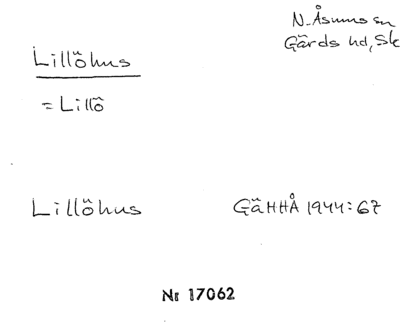 N. Åsums sn
Gärds hd, Sk
Lillöhus
= Lillö
Lillöhus GäHHÅ 1944:67
Nr 17062